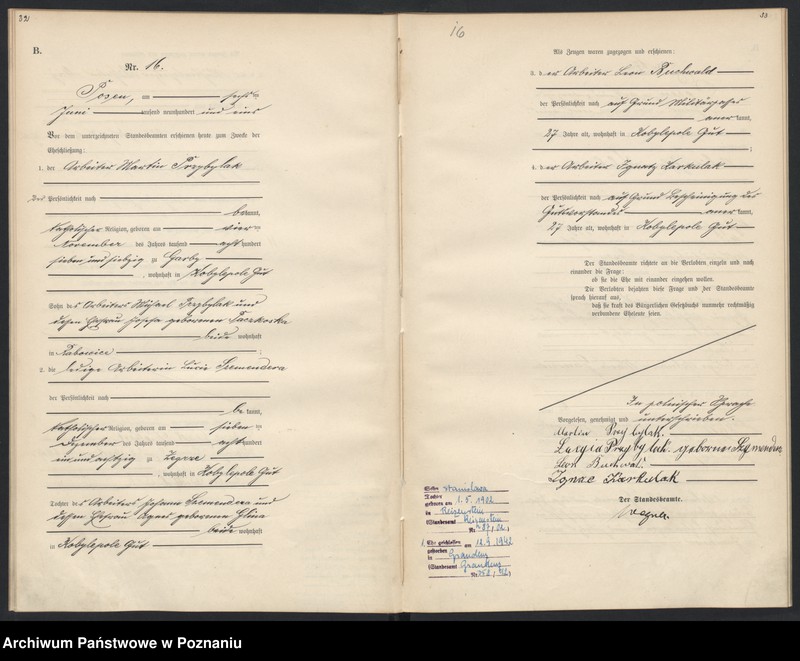 32
B.
Nr. 16.
Posen, am sechs ten
Juni tausend neunhundert und eins
Vor dem unterzeichneten Standesbeamten erschienen heute zum Zwecke der
Eheschließung:
1. der Arbeiter Martin Przybylak
der Persönlichkeit nach
bekannt,
katholischer Religion, geboren am vier ten
November des Jahres tausend acht hundert
sieben und siebzig zu Garby
, wohnhaft in Kobylepole Gut
Sohn des Arbeiters Michael Przybylak und
dessen Ehefrau Josefa geborenen
beide wohnhaft
in Rabowice ;
2. die ledige Arbeiterin Lucie Szemendera
der Persönlichkeit nach
be kannt,
katholischer Religion, geboren am sieben ten
Dezember des Jahres tausend acht hundert
ein und achtzig zu
, wohnhaft in Kobylepole Gut
Tochter des Arbeiters Johann Szemendera und
dessen Ehefrau Agnes geborenen
beide wohnhaft
in Kobylepole Gut
16
33
Als Zeugen waren zugezogen und erschienen:
3. der Arbeiter Leon Buchwald
der Persönlichkeit nach auf Grund Militärpasses
aner kannt,
27 Jahre alt, wohnhaft in Kobylepole Gut
;
4. der Arbeiter Ignatz Karkulak
der Persönlichkeit nach auf Grund Bescheinigung des
Gutsvorstandes aner kannt,
27 Jahre alt, wohnhaft in Kobylepole Gut
.
Der Standesbeamte richtete an die Verlobten einzeln und nach
einander die Frage:
ob sie die Ehe mit einander eingehen wollen.
Die Verlobten bejahten diese Frage und der Standesbeamte
sprach hierauf aus,
daß sie kraft des Bürgerlichen Gesetzbuchs nunmehr rechtmäßig
verbundene Eheleute seien.
In polnischer Sprache
Vorgelesen, genehmigt und unterschrieben.
Martin Przybylak.
Lucyja Przybylak geborene
Leon Buchwal
Ignac Karkulak
Der Standesbeamte.
Sohn Stanislawa
Tochter
geboren am 1.5. 1902
in
(Standesamt
Nr.
1. Ehe geschlossen
gestorben am 12.9.1942
in Graudenz
(Standesamt Graudenz
Nr.
Archiwum Państwowe w Poznaniu